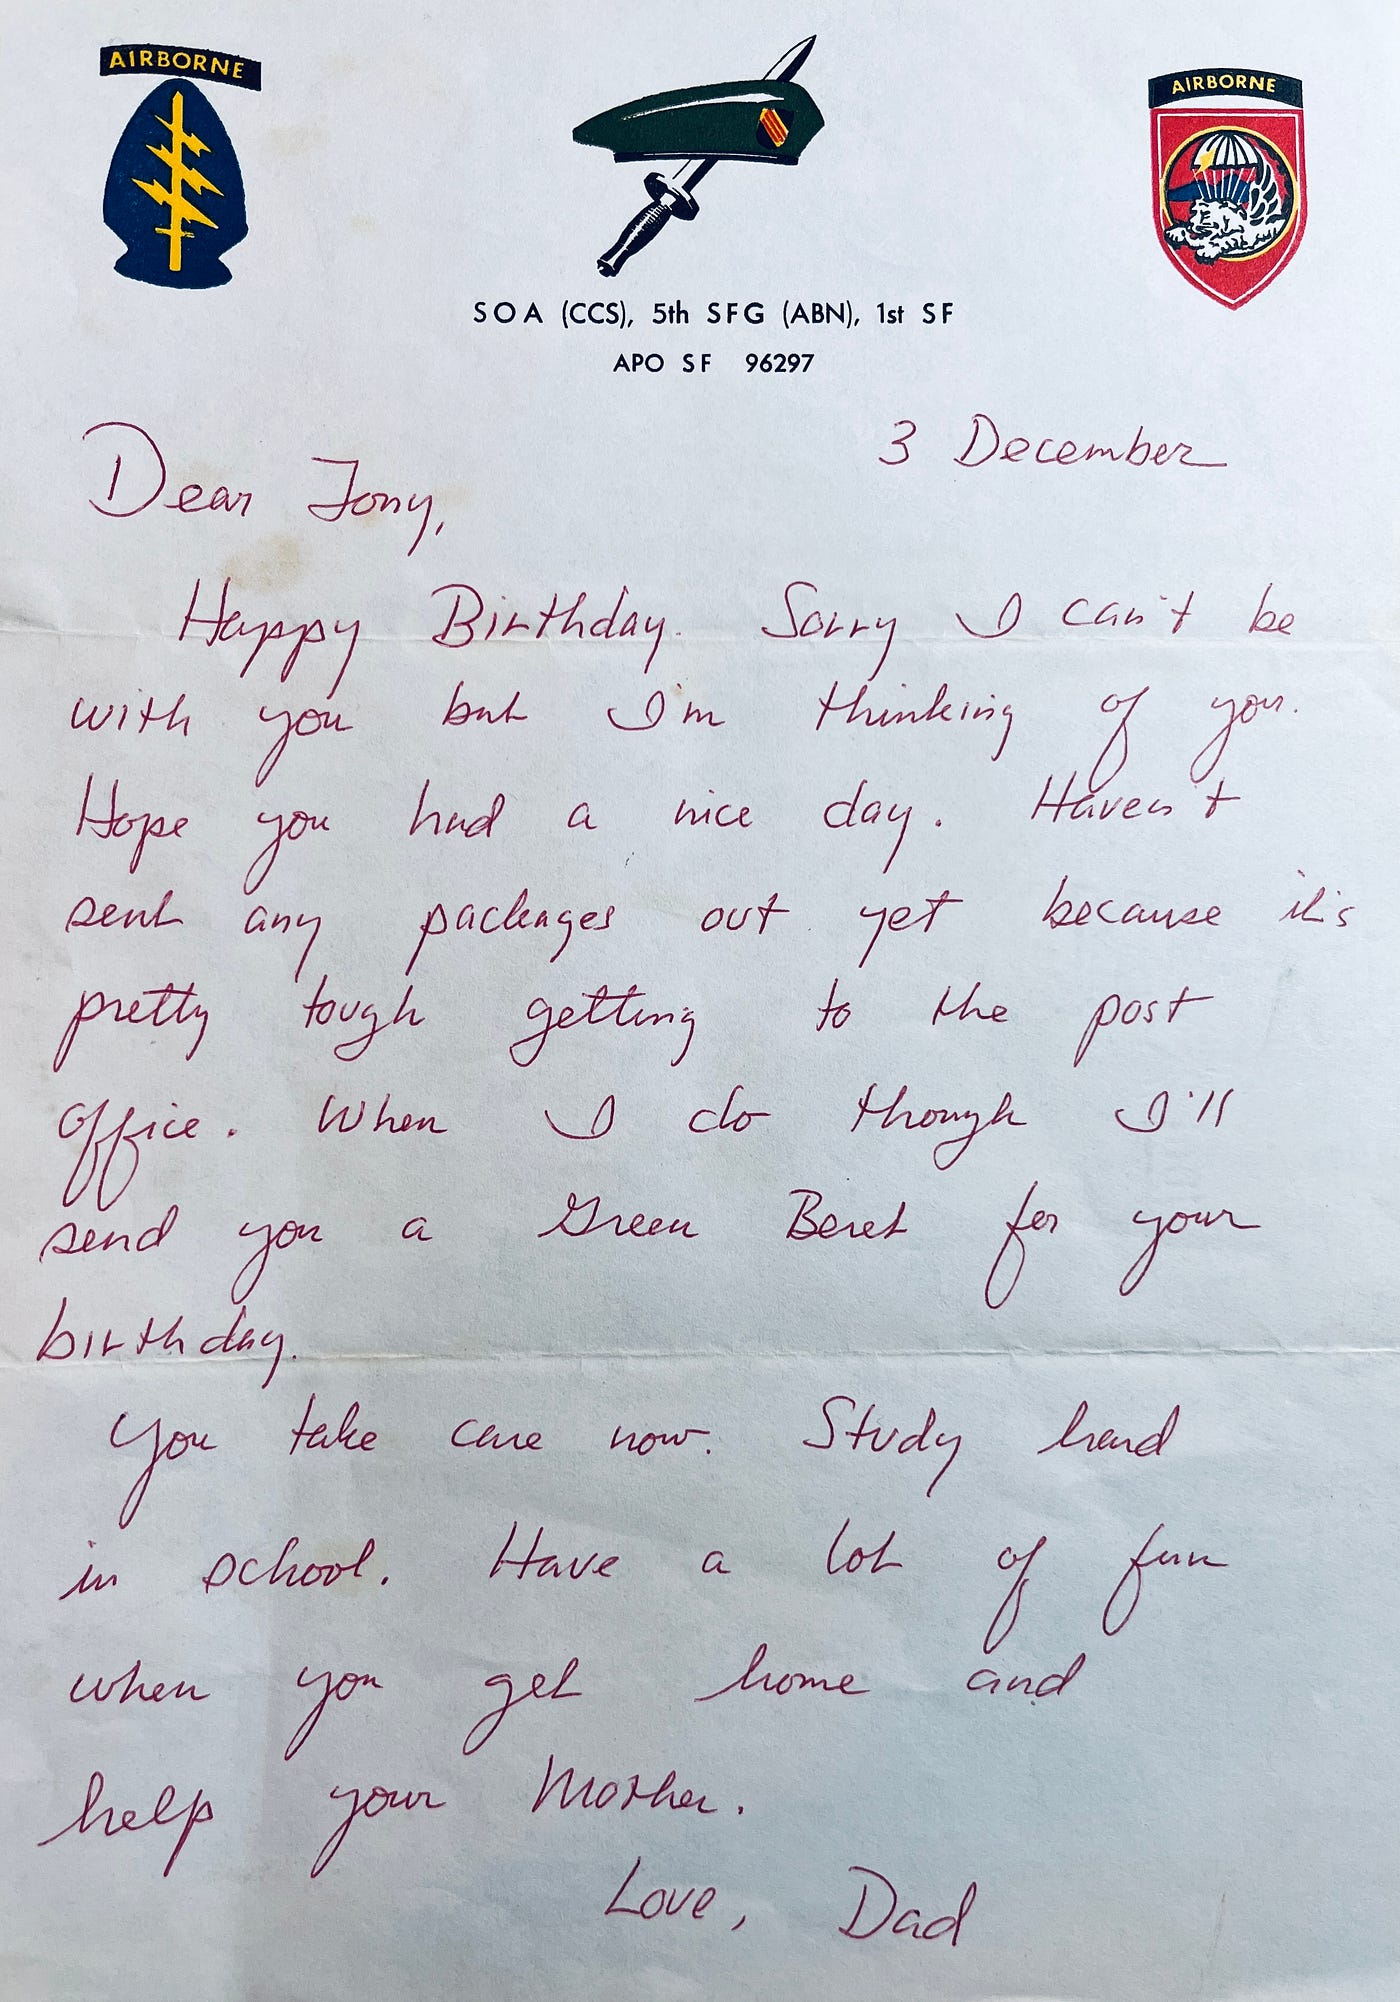 AIRBORNE
AIRBORNE
SOA (CCS), 5th SFG (ABN), 1st SF
APO SF 96297
3 December
Dear Tony,
Happy Birthday. Sorry I can't be
with you but I'm thinking of you.
Hope you had a nice day. Haven't
sent any packages out yet because it's
pretty tough getting to the post
office. When I do though I'll
send you a Green Beret for your
birthday.
You take care now. Study hard
in school. Have a lot of fun
when you get home and
help your Mother.
Love, Dad